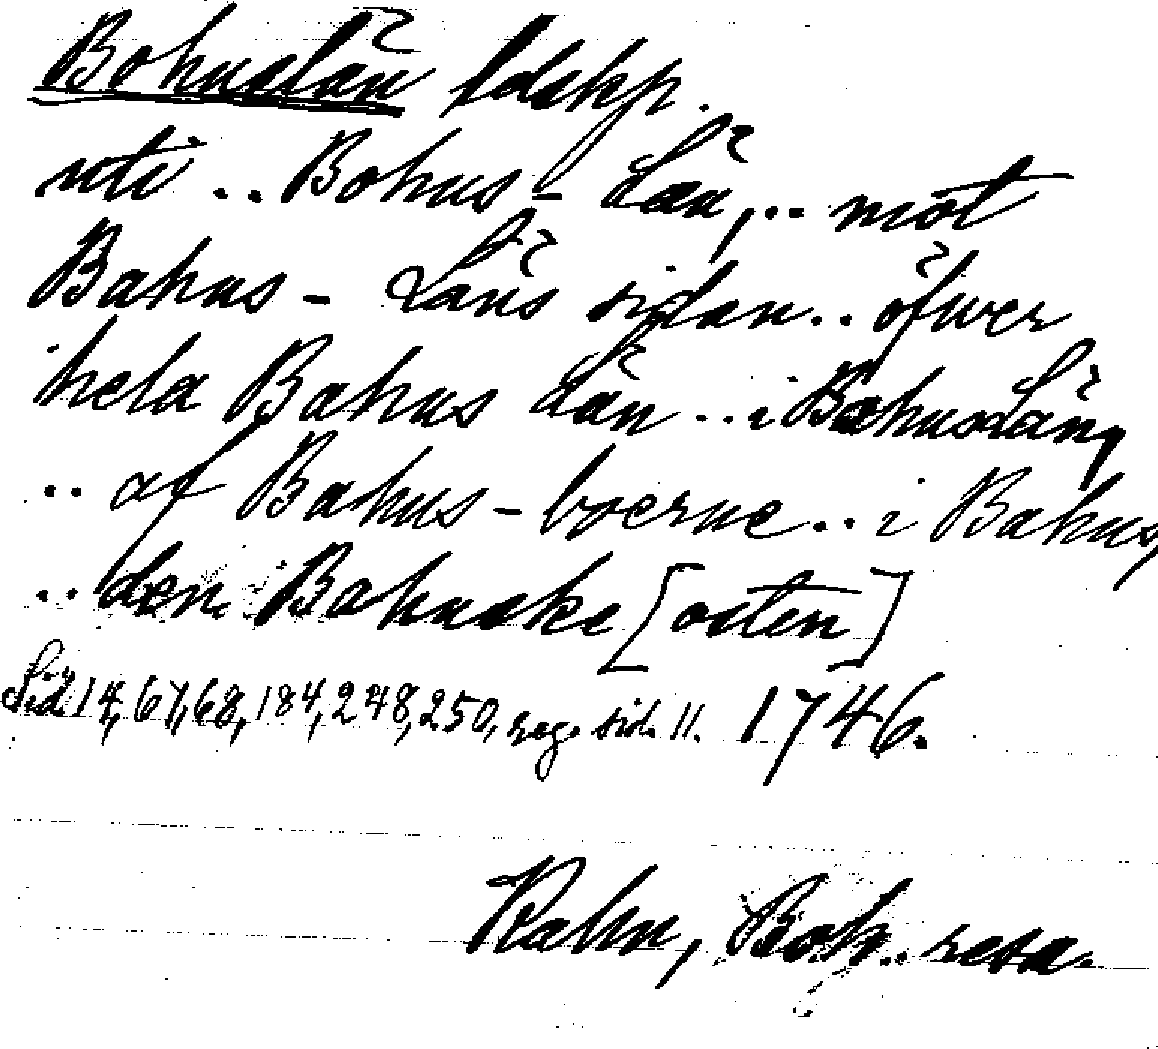 Bohuslän ldskp.
uti .. Bohus - Län, .. mot
Bahus - Läns sidan .. öfwer
hela Bahus Län .. i BohusLän,
.. af Bahus - boerne .. i Bahus,
.. den Bahuske [osten]
Sid 14, 67, 68, 184, 248, 250, reg. sid. 11. 1746.
Kalm, Boh. resa.